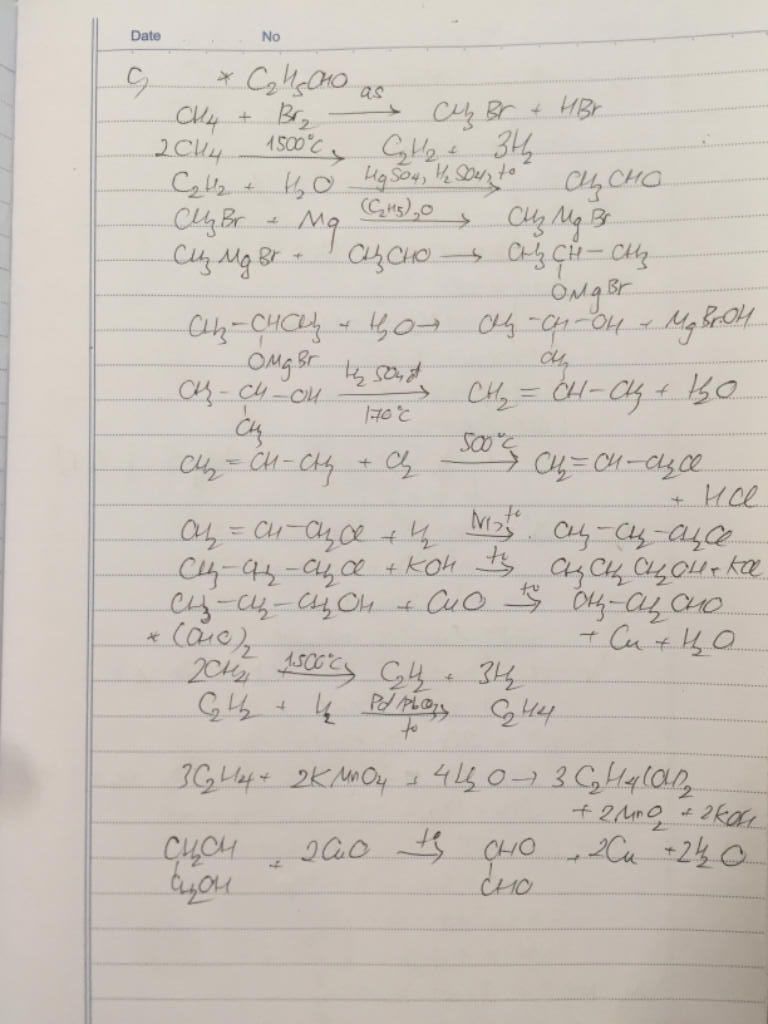 Date No
c, * C2H5CHO
CH4 + Br2 —as→ CH3Br + HBr
2CH4 —1500°C→ C2H2 + 3H2
C2H2 + H2O —HgSO4, H2SO4, t°→ CH3CHO
CH3Br + Mg —(C2H5)2O→ CH3MgBr
CH3MgBr + CH3CHO → CH3CH-CH3
OMgBr
CH3-CHCH3 + H2O → CH3-CH-OH + MgBrOH
OMgBr CH3
CH3-CH-OH —H2SO4đ 170°C→ CH2=CH-CH3 + H2O
CH3
CH2=CH-CH3 + Cl2 —500°C→ CH2=CH-CH2Cl
+ HCl
CH2=CH-CH2Cl + H2 —Ni, t°→ CH3-CH2-CH2Cl
CH3-CH2-CH2Cl + KOH —t°→ CH3CH2CH2OH + KCl
CH3-CH2-CH2OH + CuO —t°→ CH3-CH2CHO
* (CHO)2 + Cu + H2O
2CH4 —1500°C→ C2H2 + 3H2
C2H2 + H2 —Pd/PbCO3 t°→ C2H4
3C2H4 + 2KMnO4 + 4H2O → 3C2H4(OH)2
+ 2MnO2 + 2KOH
CH2OH + 2CuO —t°→ CHO + 2Cu + 2H2O
CH2OH CHO